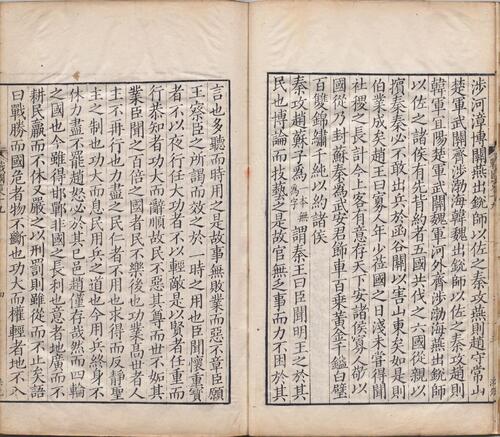 涉河漳博關燕出銳師以佐之秦攻燕則趙守常山
楚軍武關齊涉渤海韓魏出銳師以佐之秦攻趙則
韓軍宜陽楚軍武關魏軍河外齊涉渤海燕出銳師
以佐之諸侯有先背約者五國共伐之六國從親以
擯秦秦必不敢出兵於函谷關以害山東矣如是則
伯業成矣趙王曰寡人年少莅國之日淺未嘗得聞
社稷之長計今上客有意存天下安諸侯寡人敬以
國從乃封蘇秦為武安君飾車百乘黃金千鎰白璧
百雙錦繡千純以約諸侯
秦攻趙蘇子為本無為字謂秦王曰臣聞明王之於其
民也博論而技藝之是故官無乏事而力不困於其
言也多聽而時用之是故事無敗業而惡不章臣願
王察臣之所謂而效之於一時之用也臣聞懷重寶
者不以夜行任大功者不以輕敵是以賢者任重而
行恭知者功大而辭順故民不惡其尊而世不妬其
業臣聞之百倍之國者民不樂後也功業高世者人
主不再行也力盡之民仁者不用也求得而反靜聖
主之制也功大而息民用兵之道也今用兵終身不
休力盡不罷趙怒必於其己邑趙僅存哉然而四輪
之國也今雖得邯鄲非國之長利也意者地廣而不
耕民羸而不休又嚴之以刑罰則雖從而不止矣語
曰戰勝而國危者物不斷也功大而權輕者地不入